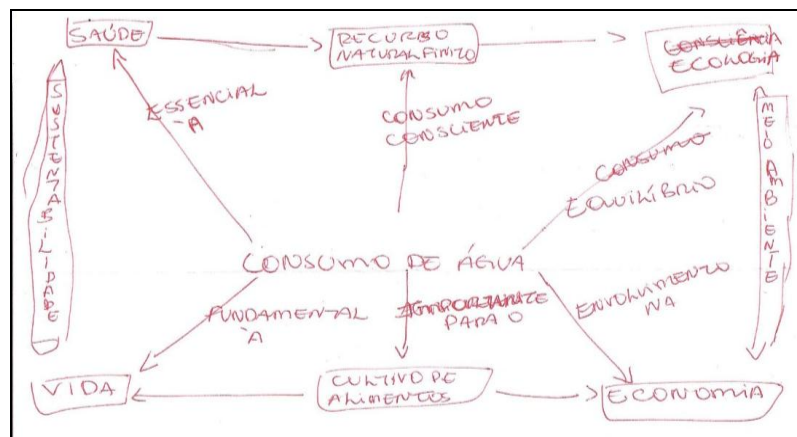 SAÚDE
RECURSO
NATURAL FINITO
CONSCIÊNCIA
ECOLOGIA
ESSENCIAL
À
CONSUMO
CONSCIENTE
CONSUMO
EQUILÍBRIO
SUSTENTABILIDADE
MEIO AMBIENTE
CONSUMO DE ÁGUA
FUNDAMENTAL
À
IMPORTANTE
PARA O
ENVOLVIMENTO
NA
VIDA
CULTIVO DE
ALIMENTOS
ECONOMIA